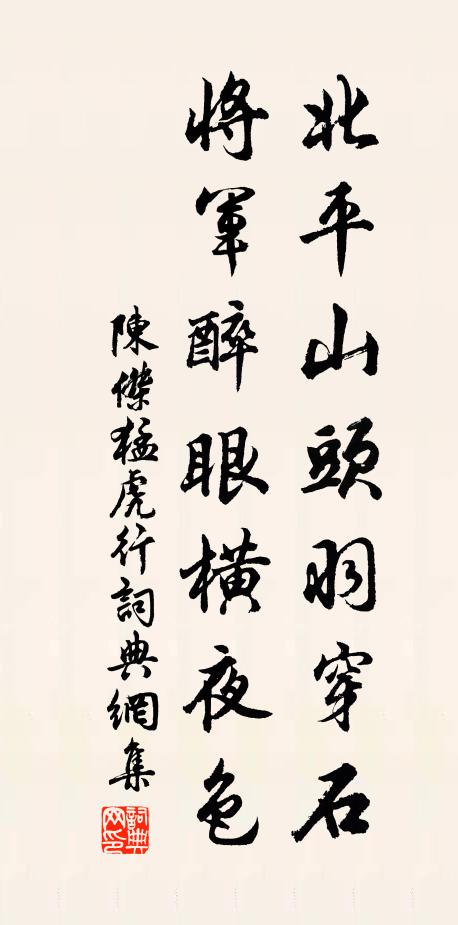 北平山頭羽穿石
將軍醉眼橫夜色
陳傑猛虎行詞典網集
詞典网印